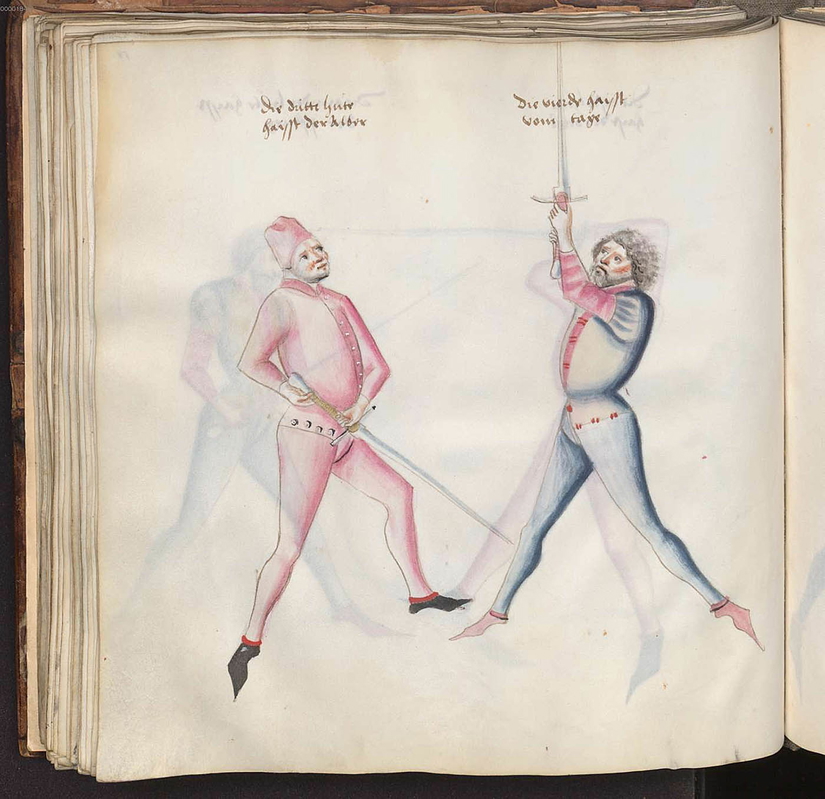 000018
die dritte hute
haisst der Alber
die vierde haisst
vom tage